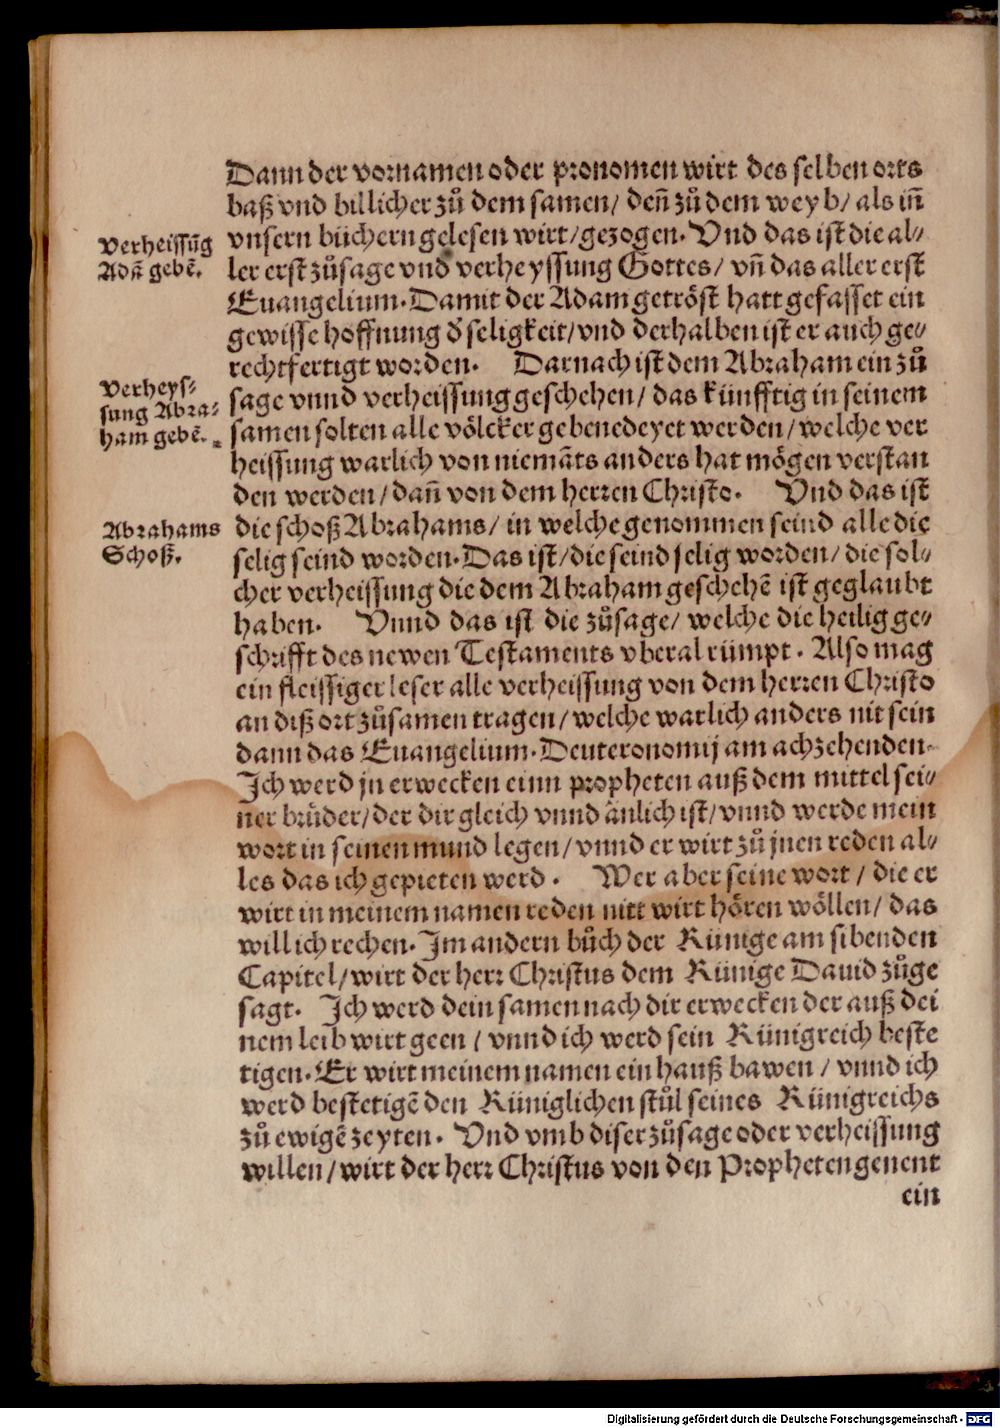 Dann der vornamen oder pronomen wirt des selben orts
baß vnd billicher zů dem samen/ deñ zů dem weyb/ als iñ
verheissũg
Adã gebẽ.
vnsern büchern gelesen wirt/gezogen. Vnd das ist die al-
ler erst zůsage vnd verheyssung Gottes/ vñ das aller erst
Euangelium. Damit der Adam getröst hatt gefasset ein
gewisse hoffnung d̕ seligkeit/vnd derhalben ist er auch ge-
rechtfertigt worden. Darnach ist dem Abraham ein zů
verheys-
sung Abra-
ham gebẽ.
sage vnnd verheissung geschehen/ das künfftig in seinem
samen solten alle völcker gebenedeyet werden/welche ver
heissung warlich von niemãts anders hat mögen verstan
den werden/dañ von dem herren Christo. Vnd das ist
Abrahams
Schoß.
die schoß Abrahams/ in welche genommen seind alle die
selig seind worden. Das ist/die seind selig worden/ die sol-
cher verheissung die dem Abraham geschehẽ ist geglaubt
haben. Vnnd das ist die zůsage/ welche die heilig ge-
schrifft des newen Testaments vberal rümpt. Also mag
ein fleissiger leser alle verheissung von dem herren Christo
an diß ort zůsamen tragen/welche warlich anders nit sein
dann das Euangelium. Deuteronomij am achzehenden.
Ich werd jn erwecken einn propheten auß dem mittel sei-
ner brůder/der dir gleich vnnd änlich ist/vnnd werde mein
wort in seinen mund legen/vnnd er wirt zů jnen reden al-
les das ich gepieten werd. Wer aber seine wort/ die er
wirt in meinem namen reden nitt wirt hören wöllen/ das
will ich rechen. Im andern bůch der Künige am sibenden
Capitel/wirt der herr Christus dem Künige Dauid zůge
sagt. Ich werd dein samen nach dir erwecken der auß dei
nem leib wirt geen/ vnnd ich werd sein Künigreich beste
tigen. Er wirt meinem namen ein hauß bawen/ vnnd ich
werd bestetigẽ den Küniglichen stůl seines Künigreichs
zů ewigẽ zeyten. Vnd vmb diser zůsage oder verheissung
willen/wirt der herr Christus von den Propheten genent
ein
Digitalisierung gefördert durch die Deutsche Forschungsgemeinschaft - DFG